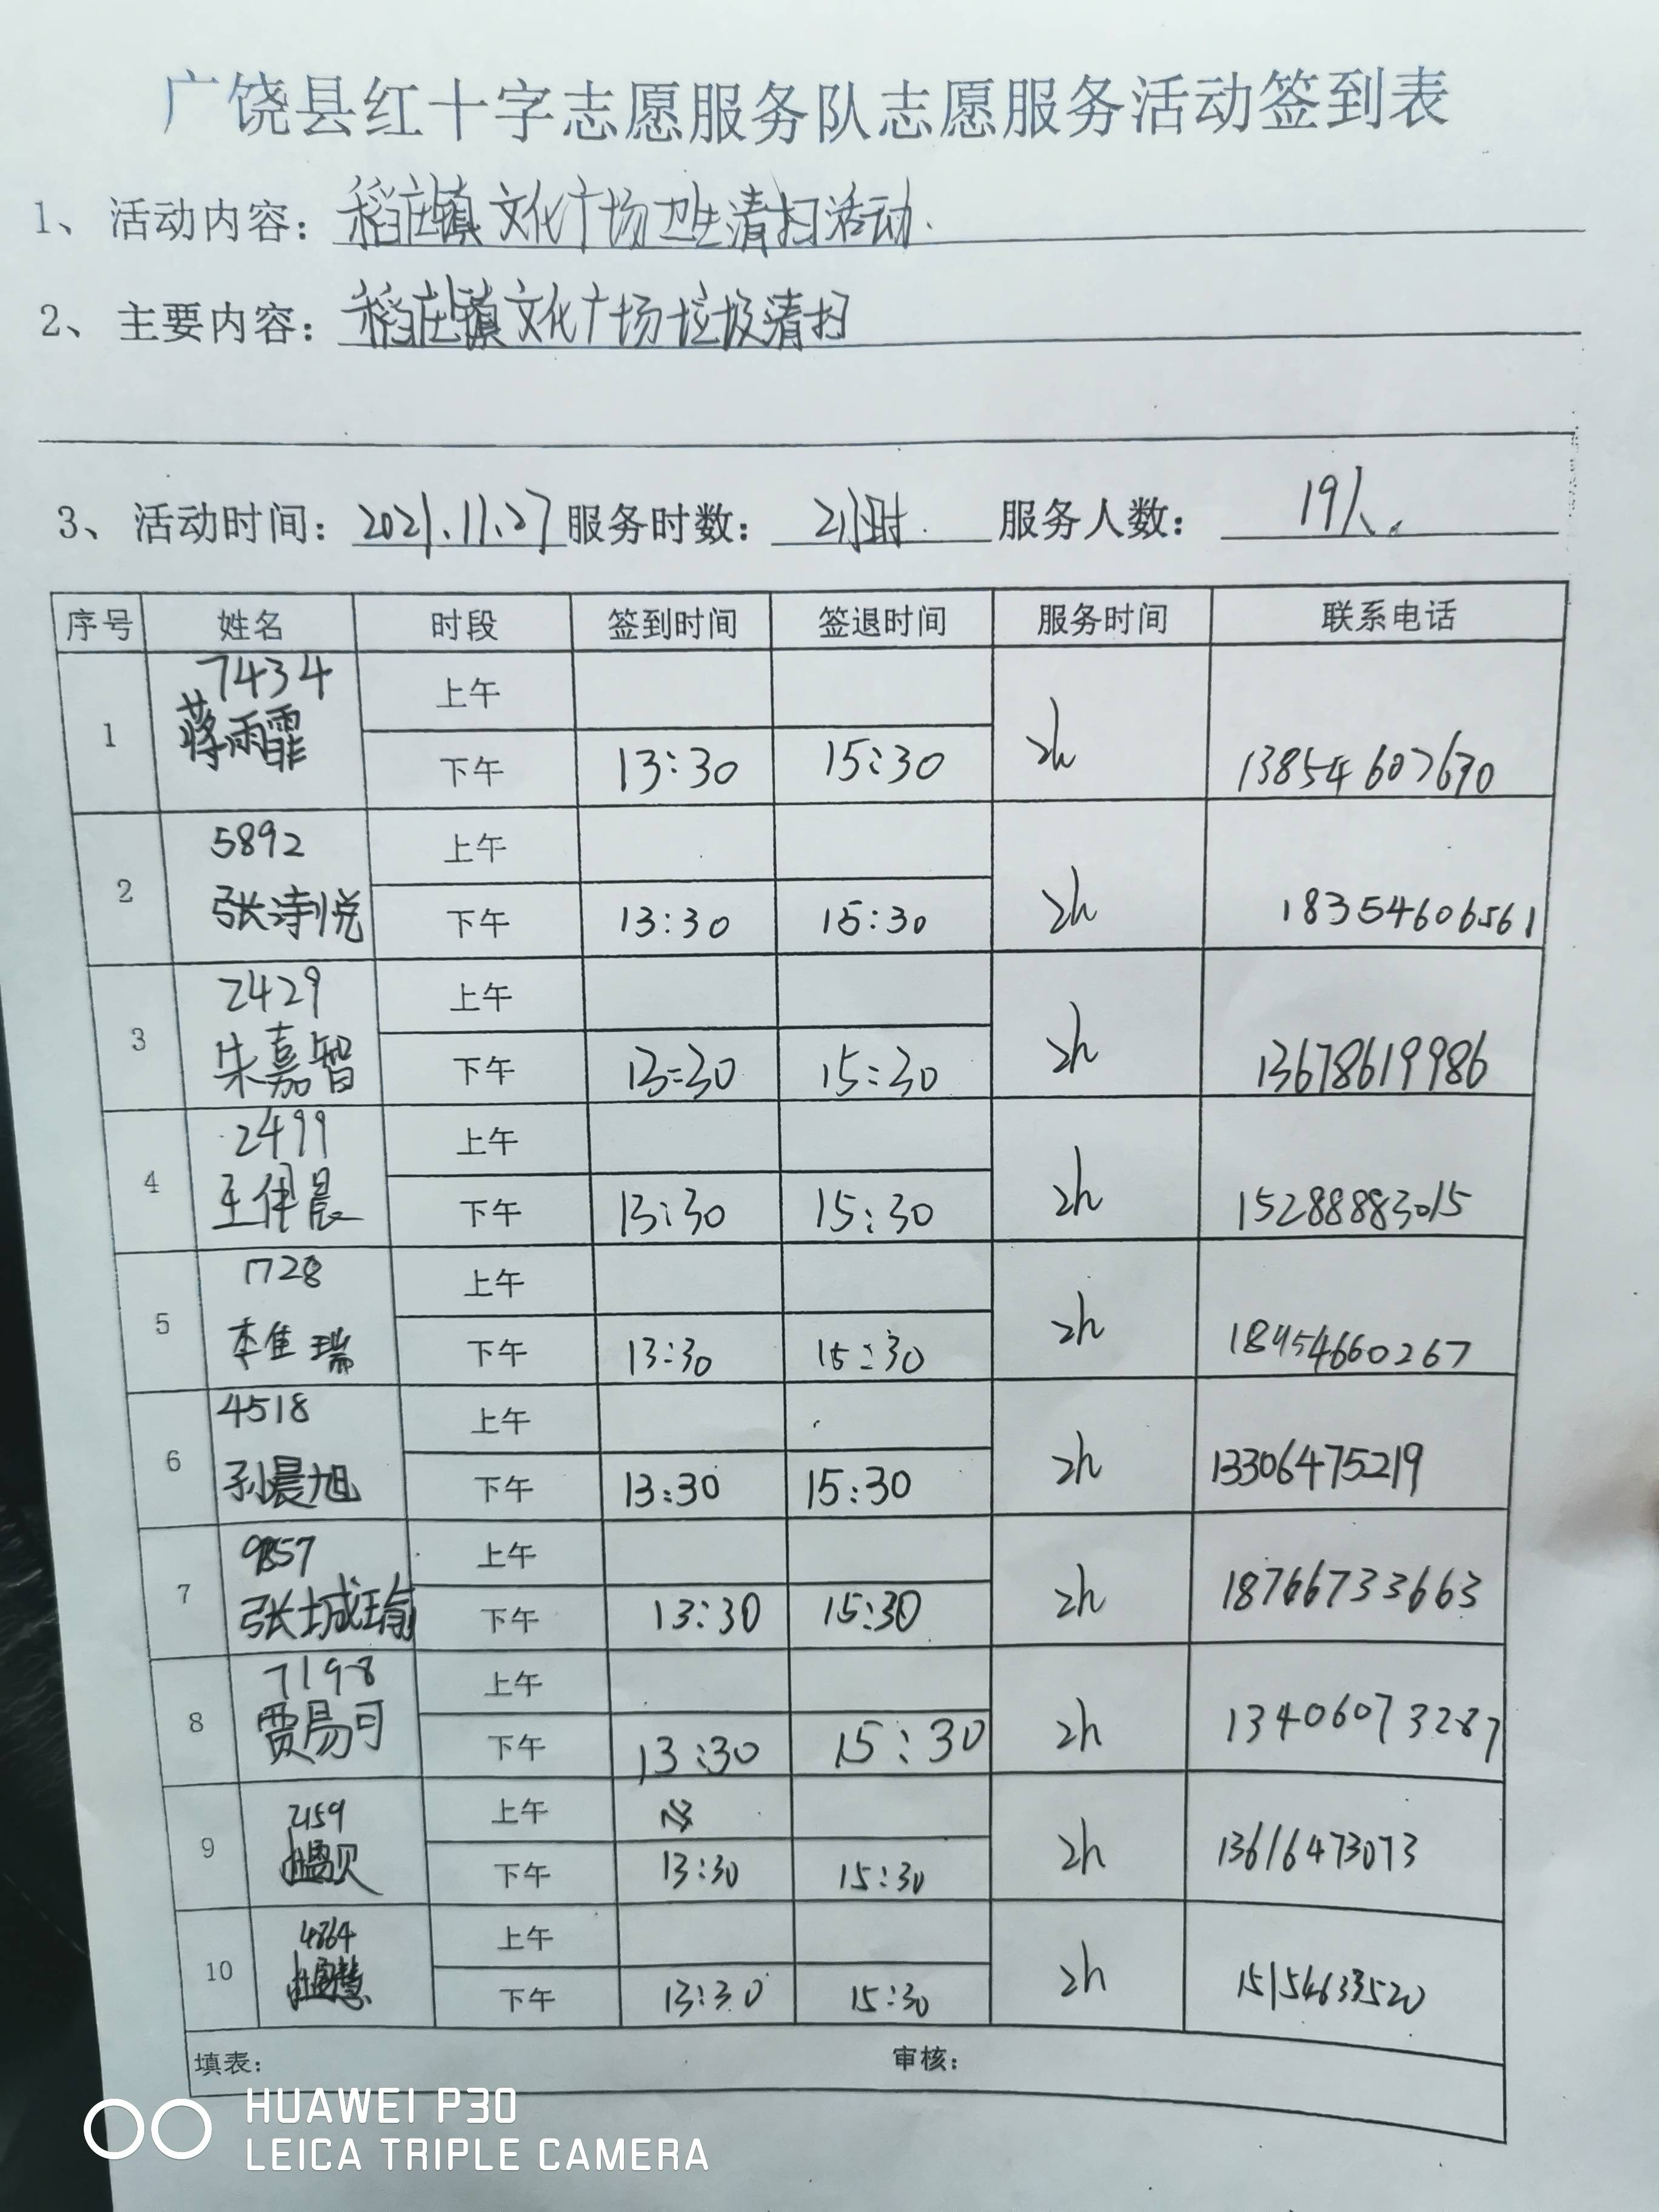 广饶县红十字志愿服务队志愿服务活动签到表
1、活动内容：稻庄镇文化广场卫生清扫活动.
2、主要内容：稻庄镇文化广场垃圾清扫
3、活动时间：2021.11.27 服务时数：2小时. 服务人数：19人.
序号 姓名 时段 签到时间 签退时间 服务时间 联系电话
1 7434 蒋雨霏 上午 2h 13854607670
下午 13:30 15:30
2 5892 张涛悦 上午 2h 18354606561
下午 13:30 15:30
3 2429 朱嘉智 上午 2h 13678619986
下午 13:30 15:30
4 2499 王伊晨 上午 2h 15288883015
下午 13:30 15:30
5 1728 李佳瑞 上午 2h 18454660267
下午 13:30 15:30
6 4518 孙晨旭 上午 2h 13306475219
下午 13:30 15:30
7 9857 张城瑜 上午 2h 18766733663
下午 13:30 15:30
8 7198 贾易可 上午 2h 13406073287
下午 13:30 15:30
9 2159 上午 2h 13616473073
下午 13:30 15:30
10 4864 上午 2h
下午 13:30 15:30
填表： 审核：
HUAWEI P30
LEICA TRIPLE CAMERA